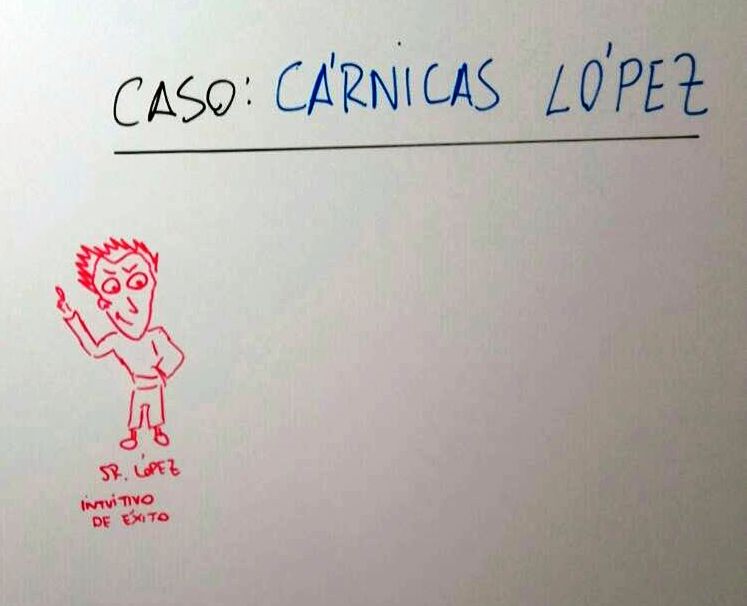 CASO: CÁRNICAS LÓPEZ
SR. LÓPEZ
INTUITIVO
DE ÉXITO